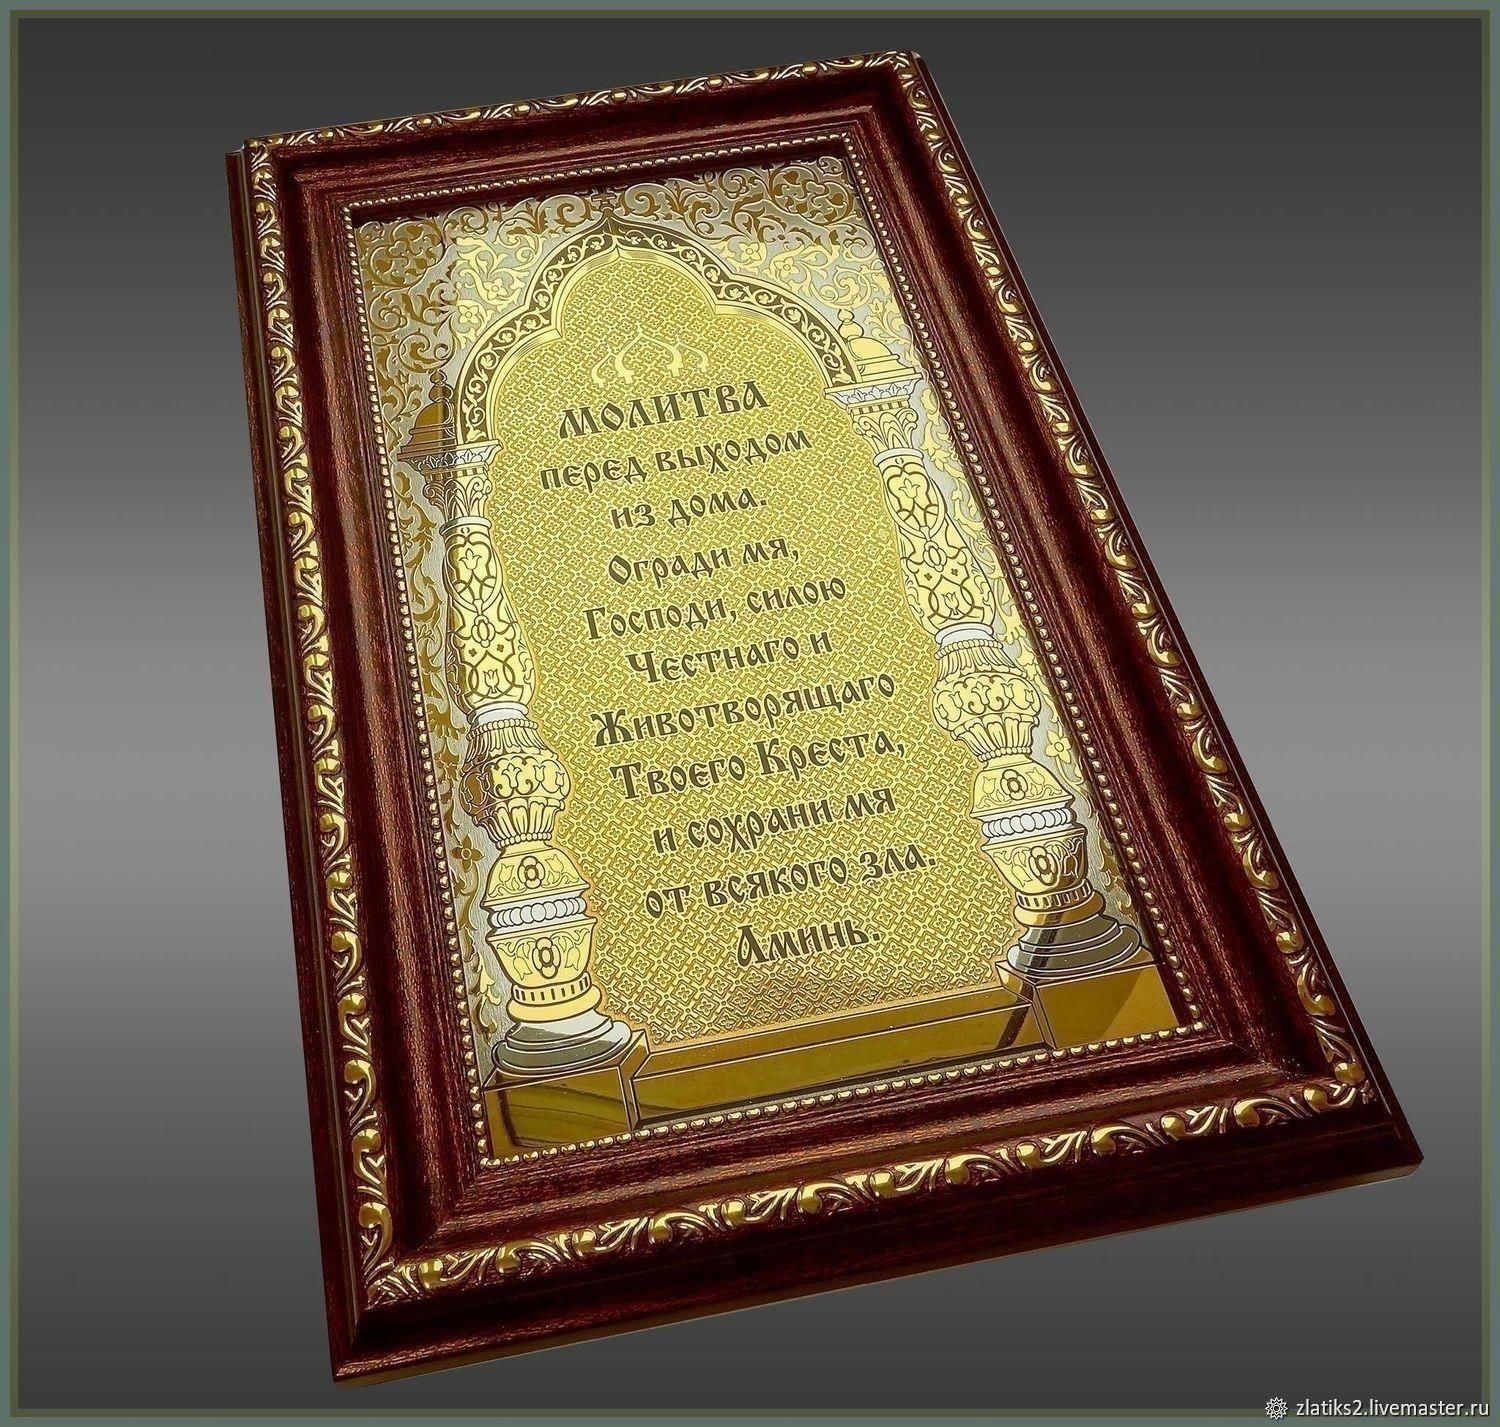 Молитва
перед выходом
из дома.
Огради мя,
Господи, силою
Честнаго и
Животворящаго
Твоего Креста,
и сохрани мя
от всякого зла.
Аминь.
zlatiks2.livemaster.ru